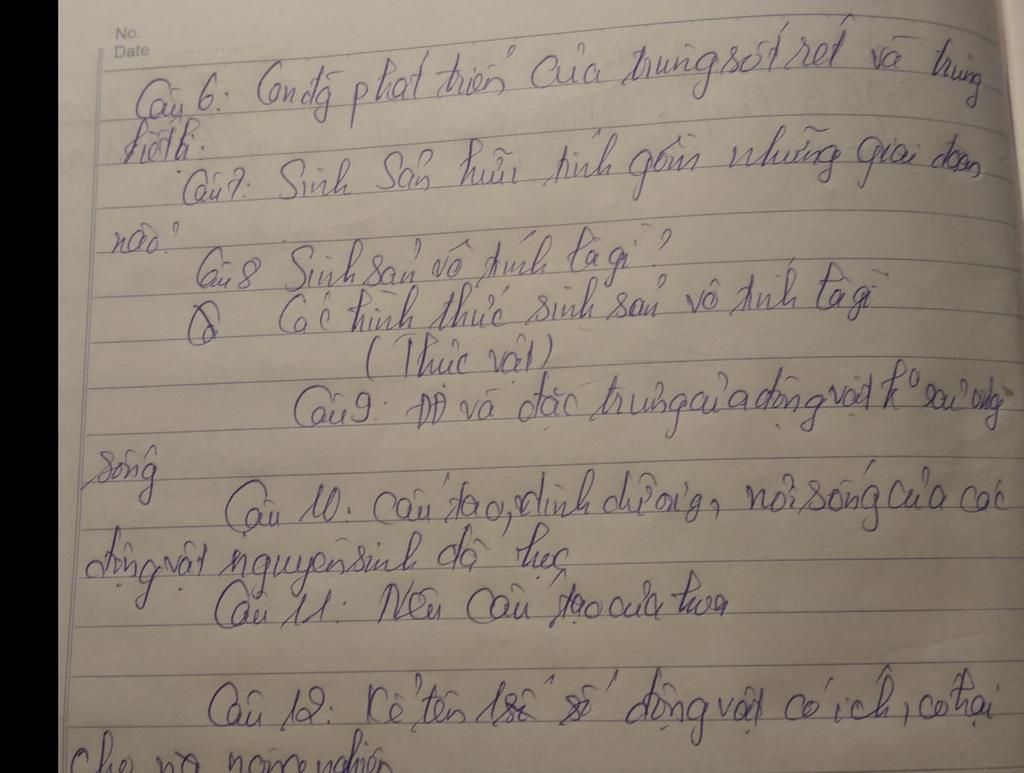 No.
Date
Câu 6: Con đg phát triển của trùng sốt rét và trùng
kiết lị.
Câu 7: Sinh sản hữu tính gồm những giai đoạn
nào?
Câu 8 Sinh sản vô tính là gì?
Các hình thức sinh sản vô tính là gì
(Thực vật)
Câu 9: và đặc trưng của động vật k° xương
sống
Câu 10: Cấu tạo, dinh dưỡng, nơi sống của các
động vật nguyên sinh đã học
Câu 11: Nêu cấu tạo của hoa
Câu 12: Kể tên số động vật có ích, có hại
cho nông nghiệp